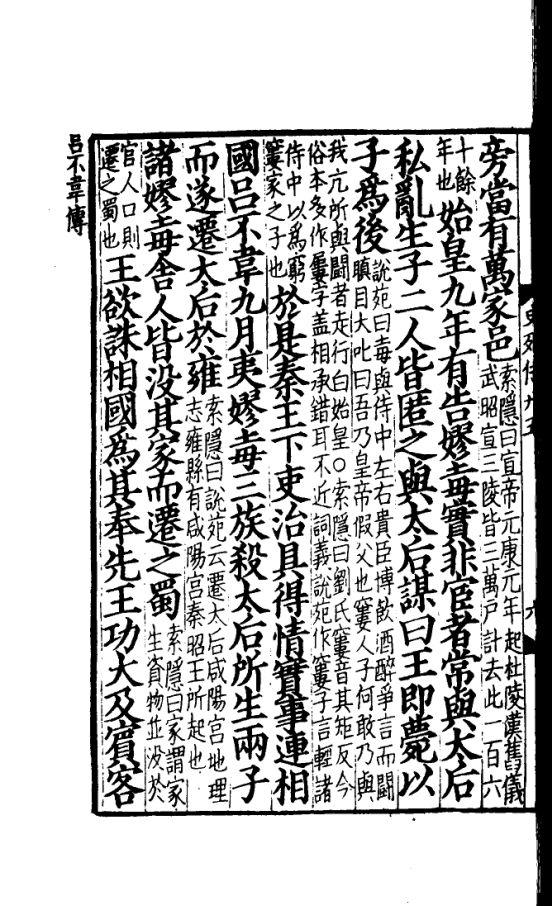 旁當有萬家邑索隱曰宣帝元康元年起杜陵漢舊儀武昭宣三陵皆三萬戶計去此一百六
十餘年也始皇九年有告嫪毐實非宦者常與太后
私亂生子二人皆匿之與太后謀曰王即薨以
子爲後說苑曰毐與侍中左右貴臣博飲酒醉爭言而鬬瞋目大叱曰吾乃皇帝假父也窶人子何敢乃與
我亢所與鬬者走行白始皇○索隱曰劉氏窶音其矩反今俗本多作屢字蓋相承錯耳不近詞義說苑作窶子言輕諸
侍中以爲窮窶家之子也於是秦王下吏治具得情實事連相
國呂不韋九月夷嫪毐三族殺太后所生兩子
而遂遷太后於雍索隱曰說苑云遷太后咸陽宮地理志雍縣有咸陽宮秦昭王所起也
諸嫪毐舍人皆没其家而遷之蜀索隱曰家謂家生資物並没於
官人口則遷之蜀也王欲誅相國爲其奉先王功大及賓客
呂不韋傳